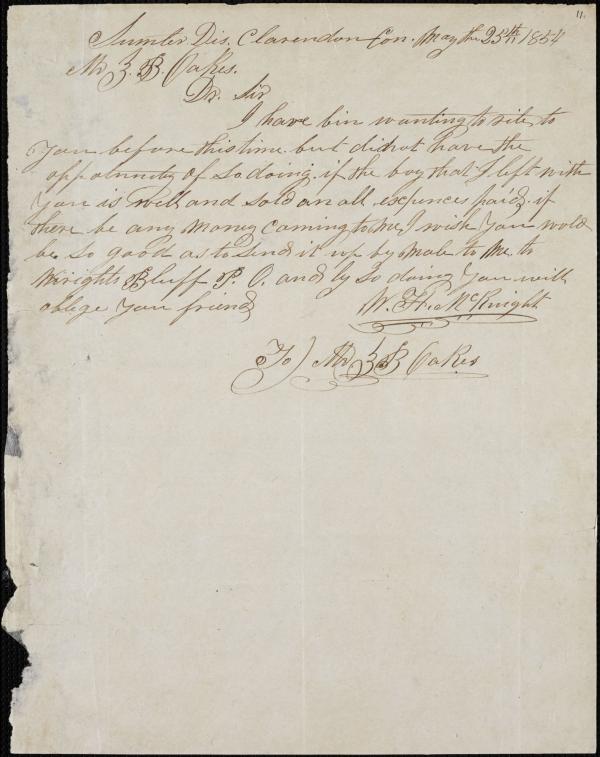 11.
Sumter Dis. Clarendon Con. May the 25th 1854
Mr Z. B. Oakes.
Dr. Sir
I have bin wanting to rite to
you before this time but did not have the
oppotunity of so doing. if the boy that I left with
you is well and sold an all expences paid, if
there be any money coming to me, I wish you wold
be so good as to send it up by male to me to
Wrights Bluff P. O. and by so doing you will
oblige you friend
W. H. McKnight
To) Mr Z B Oakes